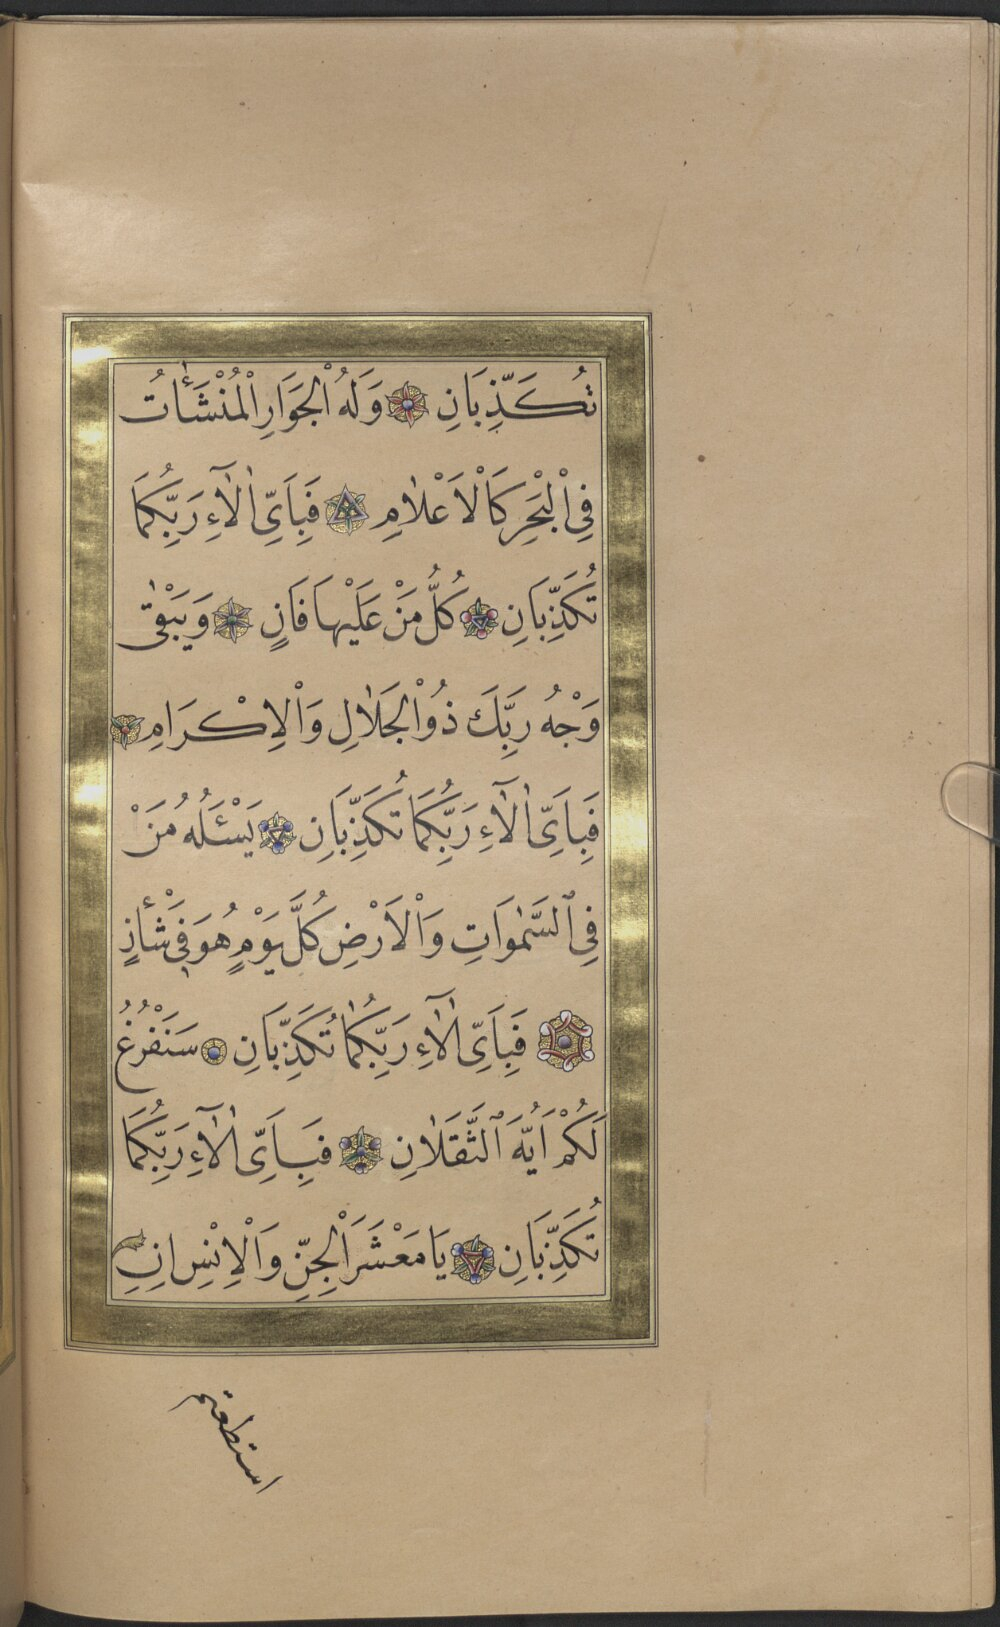 تُكَذِّبَانِ وَلَهُ الْجَوَارِ الْمُنْشَئَاتُ
فِي الْبَحْرِ كَالْاَعْلَامِ فَبِاَيِّ اٰلَٓاءِ رَبِّكُمَا
تُكَذِّبَانِ كُلُّ مَنْ عَلَيْهَا فَانٍ وَيَبْقٰى
وَجْهُ رَبِّكَ ذُوالْجَلَالِ وَالْاِكْرَامِ
فَبِاَيِّ اٰلَٓاءِ رَبِّكُمَا تُكَذِّبَانِ يَسْئَلُهُ مَنْ
فِي السَّمٰوَاتِ وَالْاَرْضِ كُلَّ يَوْمٍ هُوَ فِي شَأْنٍ
فَبِاَيِّ اٰلَٓاءِ رَبِّكُمَا تُكَذِّبَانِ سَنَفْرُغُ
لَكُمْ اَيُّهَ الثَّقَلَانِ فَبِاَيِّ اٰلَٓاءِ رَبِّكُمَا
تُكَذِّبَانِ يَا مَعْشَرَ الْجِنِّ وَالْاِنْسِ اِنِ
استطعتم